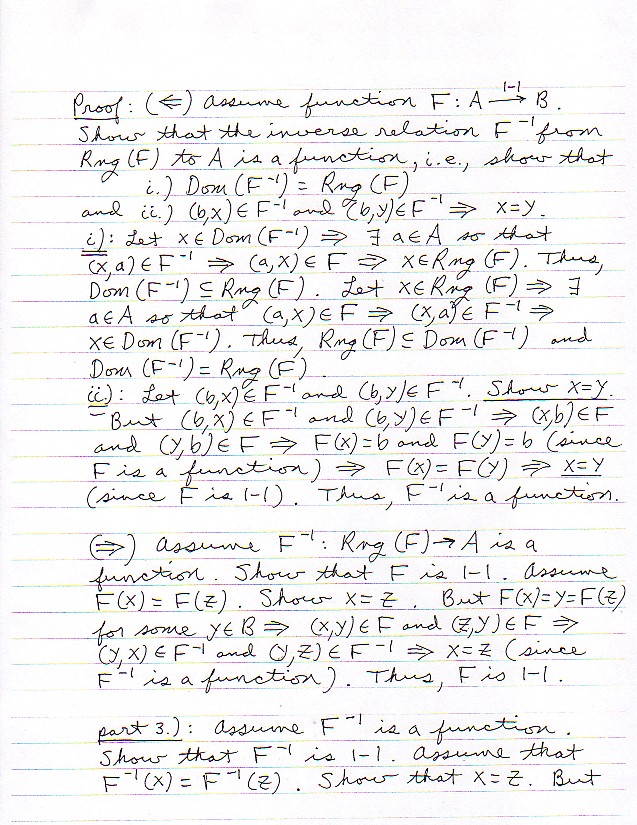 Proof: (⇐) Assume function F: A 1-1→ B.
Show that the inverse relation F⁻¹ from
Rng (F) to A is a function, i.e., show that
i.) Dom (F⁻¹) = Rng (F)
and ii.) (b,x) ∈ F⁻¹ and (b,y) ∈ F⁻¹ ⇒ x=y.
i): Let x ∈ Dom (F⁻¹) ⇒ ∃ a∈A so that
(x,a) ∈ F⁻¹ ⇒ (a,x) ∈ F ⇒ x∈Rng (F). Thus,
Dom (F⁻¹) ⊆ Rng (F). Let x∈Rng (F) ⇒ ∃
a∈A so that (a,x) ∈ F ⇒ (x,a) ∈ F⁻¹ ⇒
x∈ Dom (F⁻¹). Thus, Rng (F) ⊆ Dom (F⁻¹) and
Dom (F⁻¹) = Rng (F).
ii.): Let (b,x) ∈ F⁻¹ and (b,y) ∈ F⁻¹. Show x=y.
But (b,x) ∈ F⁻¹ and (b,y) ∈ F⁻¹ ⇒ (x,b) ∈ F
and (y,b) ∈ F ⇒ F(x)=b and F(y)=b (since
F is a function) ⇒ F(x)=F(y) ⇒ x=y
(since F is 1-1). Thus, F⁻¹ is a function.
(⇒) Assume F⁻¹: Rng (F) → A is a
function. Show that F is 1-1. Assume
F(x) = F(z). Show x=z. But F(x)=y=F(z)
for some y∈B ⇒ (x,y) ∈ F and (z,y) ∈ F ⇒
(y,x) ∈ F⁻¹ and (y,z) ∈ F⁻¹ ⇒ x=z (since
F⁻¹ is a function). Thus, F is 1-1.
part 3.): Assume F⁻¹ is a function.
Show that F⁻¹ is 1-1. Assume that
F⁻¹(x) = F⁻¹(z). Show that x=z. But